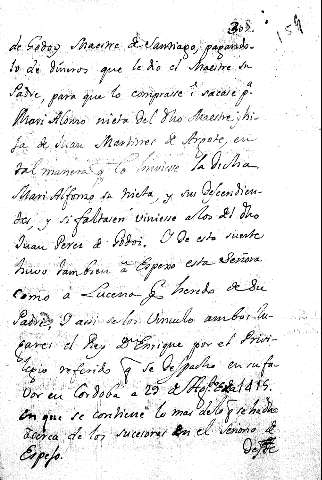 308.
159
de Godoy Maestre de Santiago, pagando-
lo de dineros que le dio el Maestre su
Padre, para que lo comprase, y sacase pª
Mari Alonso nieta del dho Maestre, y hi-
ja de Juan Martines de Argote, en
tal manera q lo hiviese la dicha
Mari Alfonso su nieta, y sus descendien-
des, y si faltasen viniese a los del dho
Juan Peres de Godoi. Y de esta suerte
huvo tambien a Espexo esta Señora
como a Lucena q heredo de su
Padre, Y assi se los vinculo ambos lu-
gares el Rey Dn Enrique por el Privi-
legio referido q se despacho en su fa-
vor en Cordoba a 29 de 1475.
en que se contiene lo mas de lo q se ha dho
acerca de los sucesores en el Señorio de
Espejo.
Desde